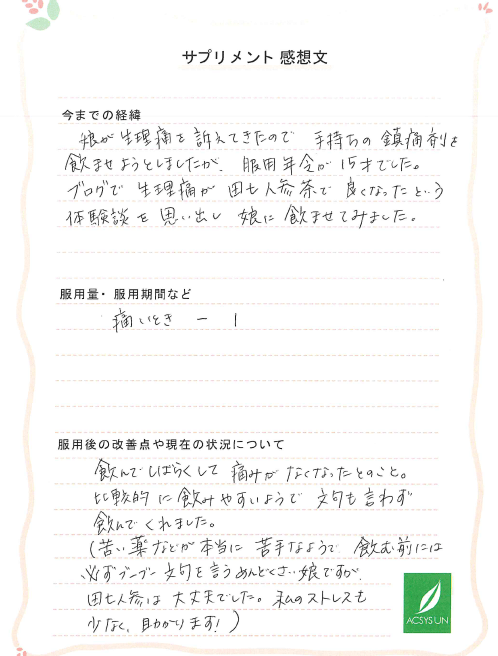 サプリメント 感想文
今までの経緯
娘が生理痛を訴えてきたので 手持ちの鎮痛剤を
飲ませようとしましたが、服用年令が15才でした。
ブログで 生理痛が 田七人参茶で 良くなったという
体験談を思い出し 娘に飲ませてみました。
服用量・服用期間など
痛いとき ー 1
服用後の改善点や現在の状況について
飲んでしばらくして 痛みがなくなったとのこと。
比較的に飲みやすいようで 文句も言わず
飲んでくれました。
(苦い薬などが本当に 苦手なようで 飲む前には
必ずブーブー文句を言うめんどくさい娘ですが、
田七人参は 大丈夫でした。私のストレスも
少なく、助かります!)
ACSYSUN